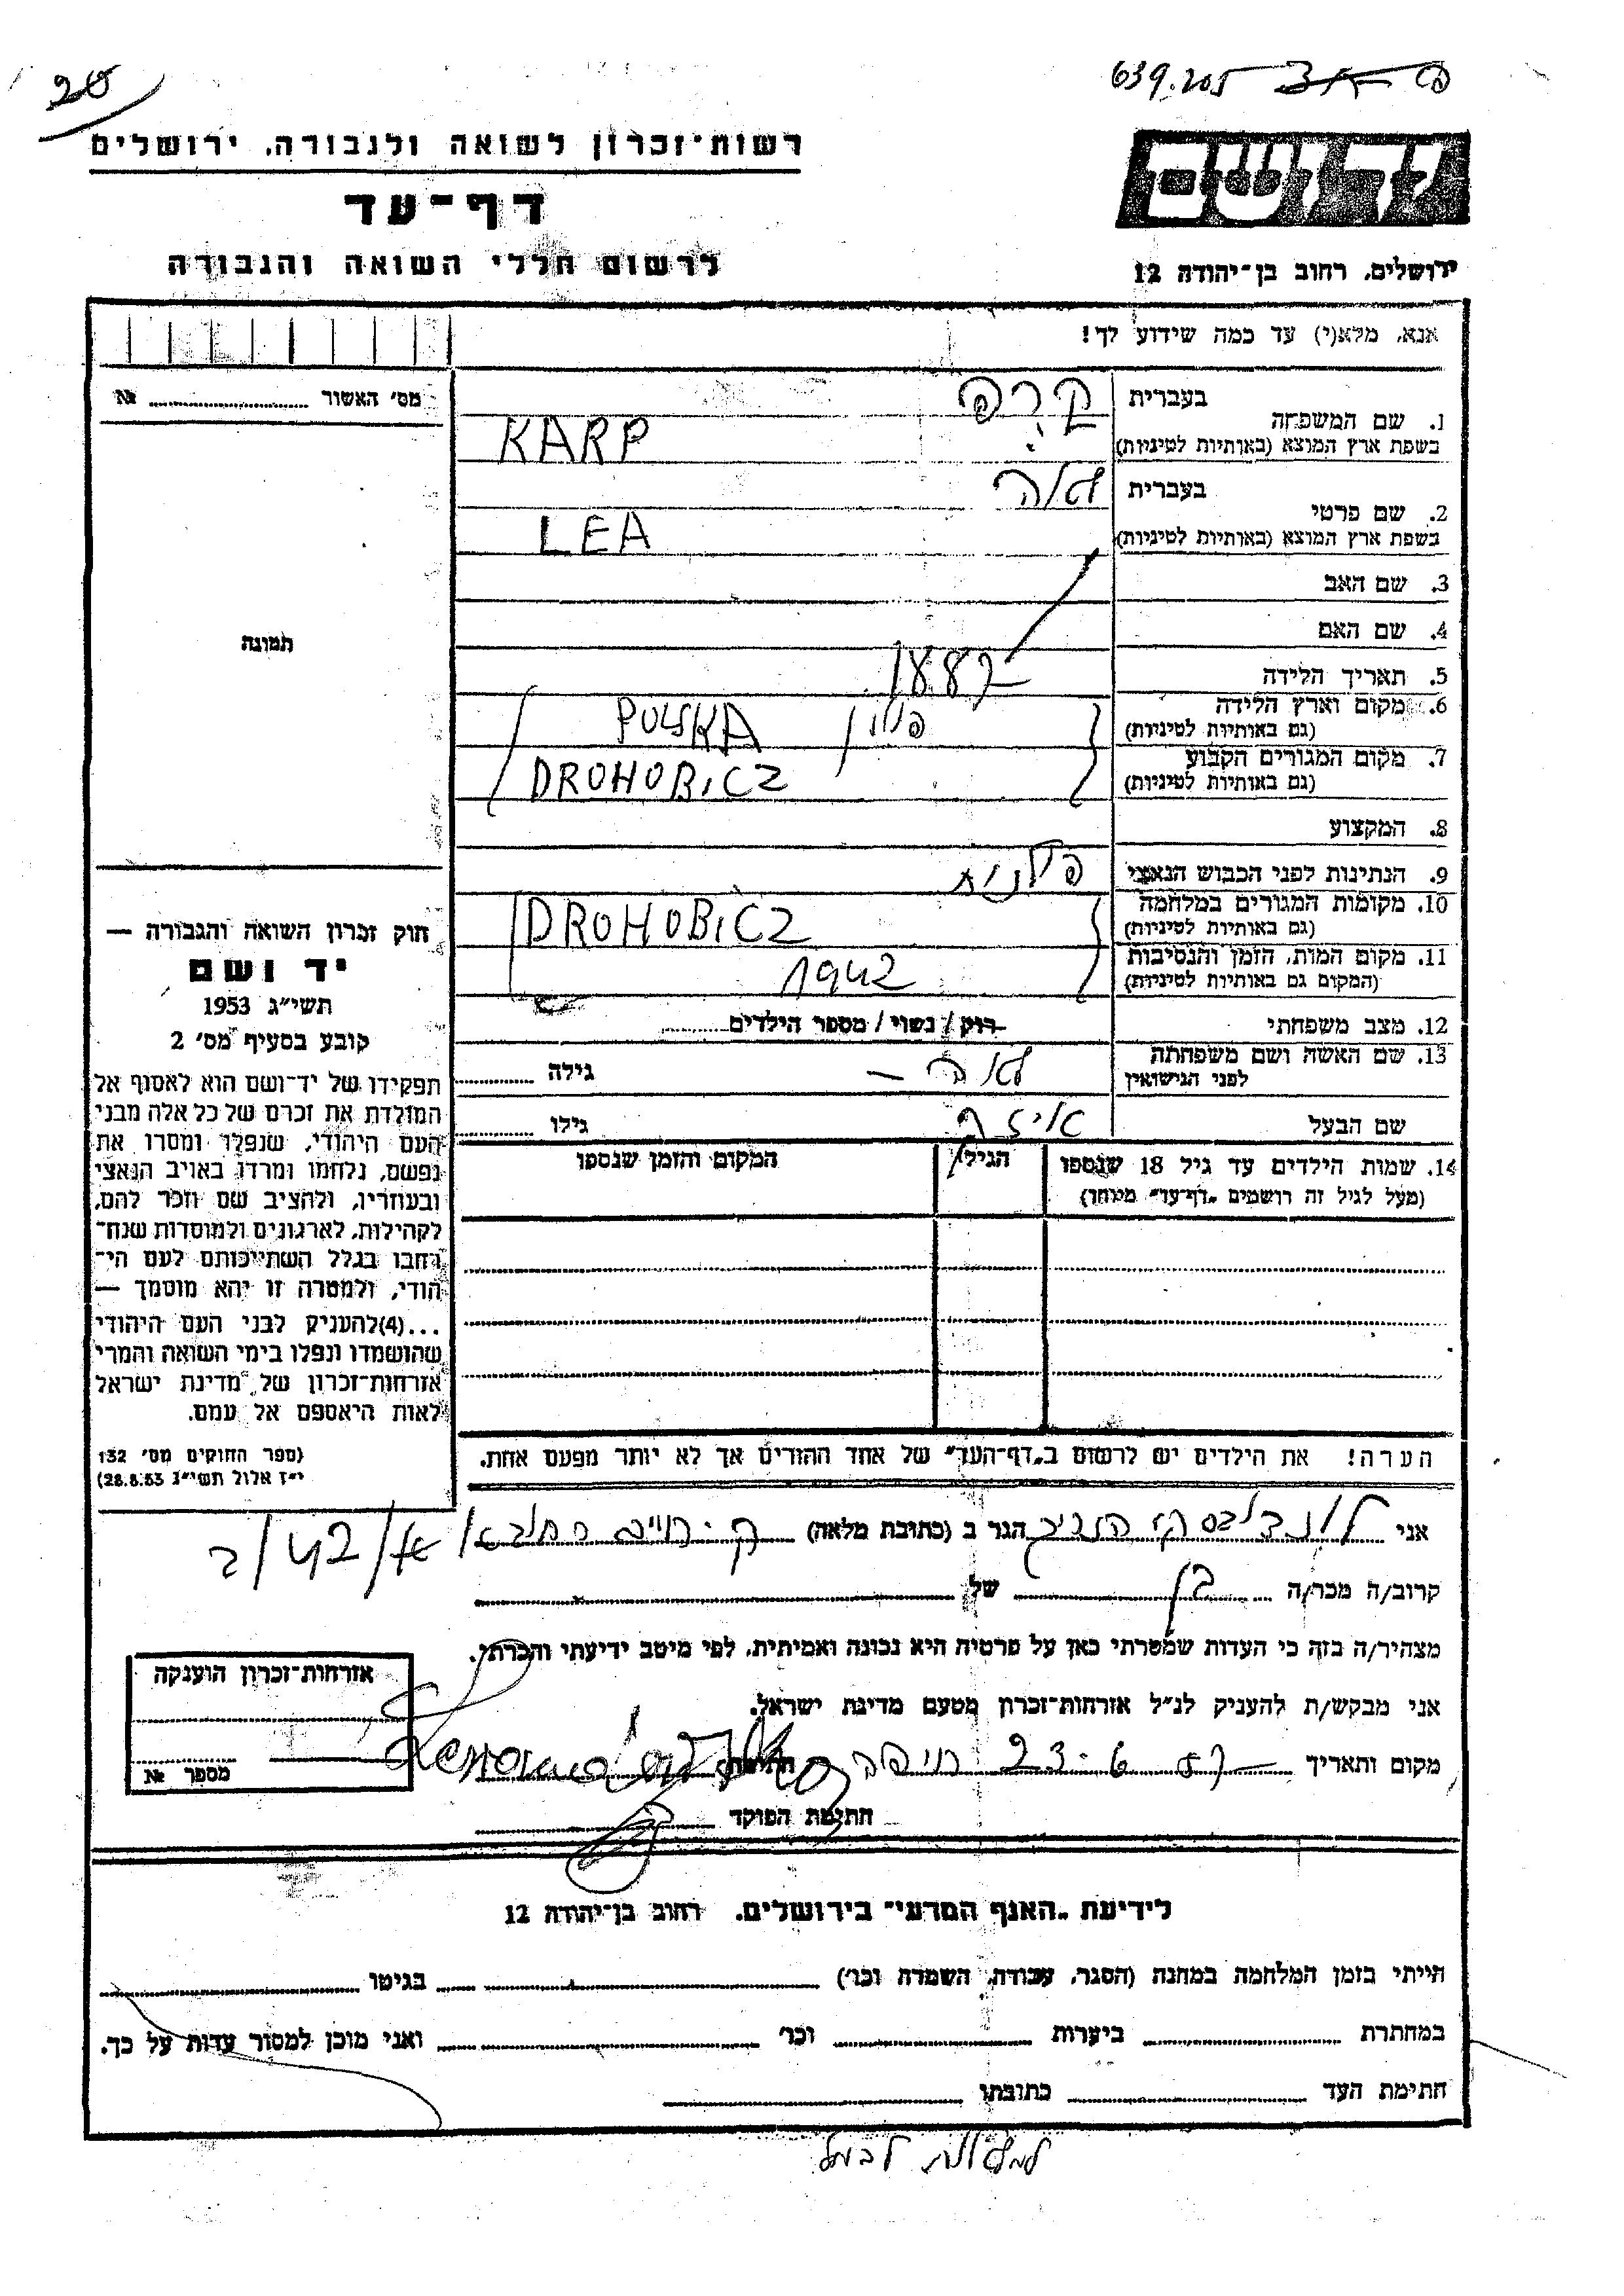 20
639.205
רשות־זכרון לשואה ולגבורה, ירושלים
דף־עד
לרשום חללי השואה והגבורה
יד ושם
ירושלים, רחוב בן־יהודה 12
אנא, מלא(י) עד כמה שידוע לך!
מס׳ האשור ........ №
תמונה
1. שם המשפחה
בעברית קרפ
בשפת ארץ המוצא (באותיות לטיניות) KARP
2. שם פרטי
בעברית לאה
בשפת ארץ המוצא (באותיות לטיניות) LEA
3. שם האב
4. שם האם
5. תאריך הלידה 1887
6. מקום וארץ הלידה
(גם באותיות לטיניות) פולין POLSKA
7. מקום המגורים הקבוע
(גם באותיות לטיניות) DROHOBICZ
8. המקצוע
9. הנתינות לפני הכבוש הנאצי פולנית
10. מקומות המגורים במלחמה
(גם באותיות לטיניות) DROHOBICZ
11. מקום המות, הזמן והנסיבות
(המקום גם באותיות לטיניות) 1942
12. מצב משפחתי רוק / נשוי / מספר הילדים
13. שם האשה ושם משפחתה
לפני הנישואין לאה — גילה
שם הבעל גילו
14. שמות הילדים עד גיל 18 שנספו
(מעל לגיל זה רושמים „דף־עד״ מיוחד)
הגיל
המקום והזמן שנספו
חוק זכרון השואה והגבורה —
יד ושם
תשי״ג 1953
קובע בסעיף מס׳ 2
תפקידו של יד־ושם הוא לאסוף אל
המולדת את זכרם של כל אלה מבני
העם היהודי, שנפלו ומסרו את
נפשם, נלחמו ומרדו באויב הנאצי
ובעוזריו, ולהציב שם וזכר להם,
לקהילות, לארגונים ולמוסדות שנח־
רבו בגלל השתייכותם לעם הי־
הודי, ולמטרה זו יהא מוסמך —
...(4)להעניק לבני העם היהודי
שהושמדו ונפלו בימי השואה והמרי
אזרחות־זכרון של מדינת ישראל
לאות היאספם אל עמם.
(ספר החוקים מס׳ 132
י״ז אלול תשי״ג 28.8.53)
הערה! את הילדים יש לרשום ב„דף־העד״ של אחד ההורים אך לא יותר מפעם אחת.
אני הגר ב (כתובת מלאה) 42/
קרוב/ה מכר/ה בן של
מצהיר/ה בזה כי העדות שמסרתי כאן על פרטיה היא נכונה ואמיתית, לפי מיטב ידיעתי והכרתי.
אני מבקש/ת להעניק לנ״ל אזרחות־זכרון מטעם מדינת ישראל.
מקום ותאריך 23.6.57 חיפה חתימה
חתימת הפוקד
אזרחות־זכרון הוענקה
מספר №
לידיעת „האגף המדעי״ בירושלים. רחוב בן־יהודה 12
הייתי בזמן המלחמה במחנה (הסגר, עבודה, השמדה וכו׳) בגיטו
במחתרת ביערות וכו׳ ואני מוכן למסור עדות על כך.
חתימת העד כתובתו